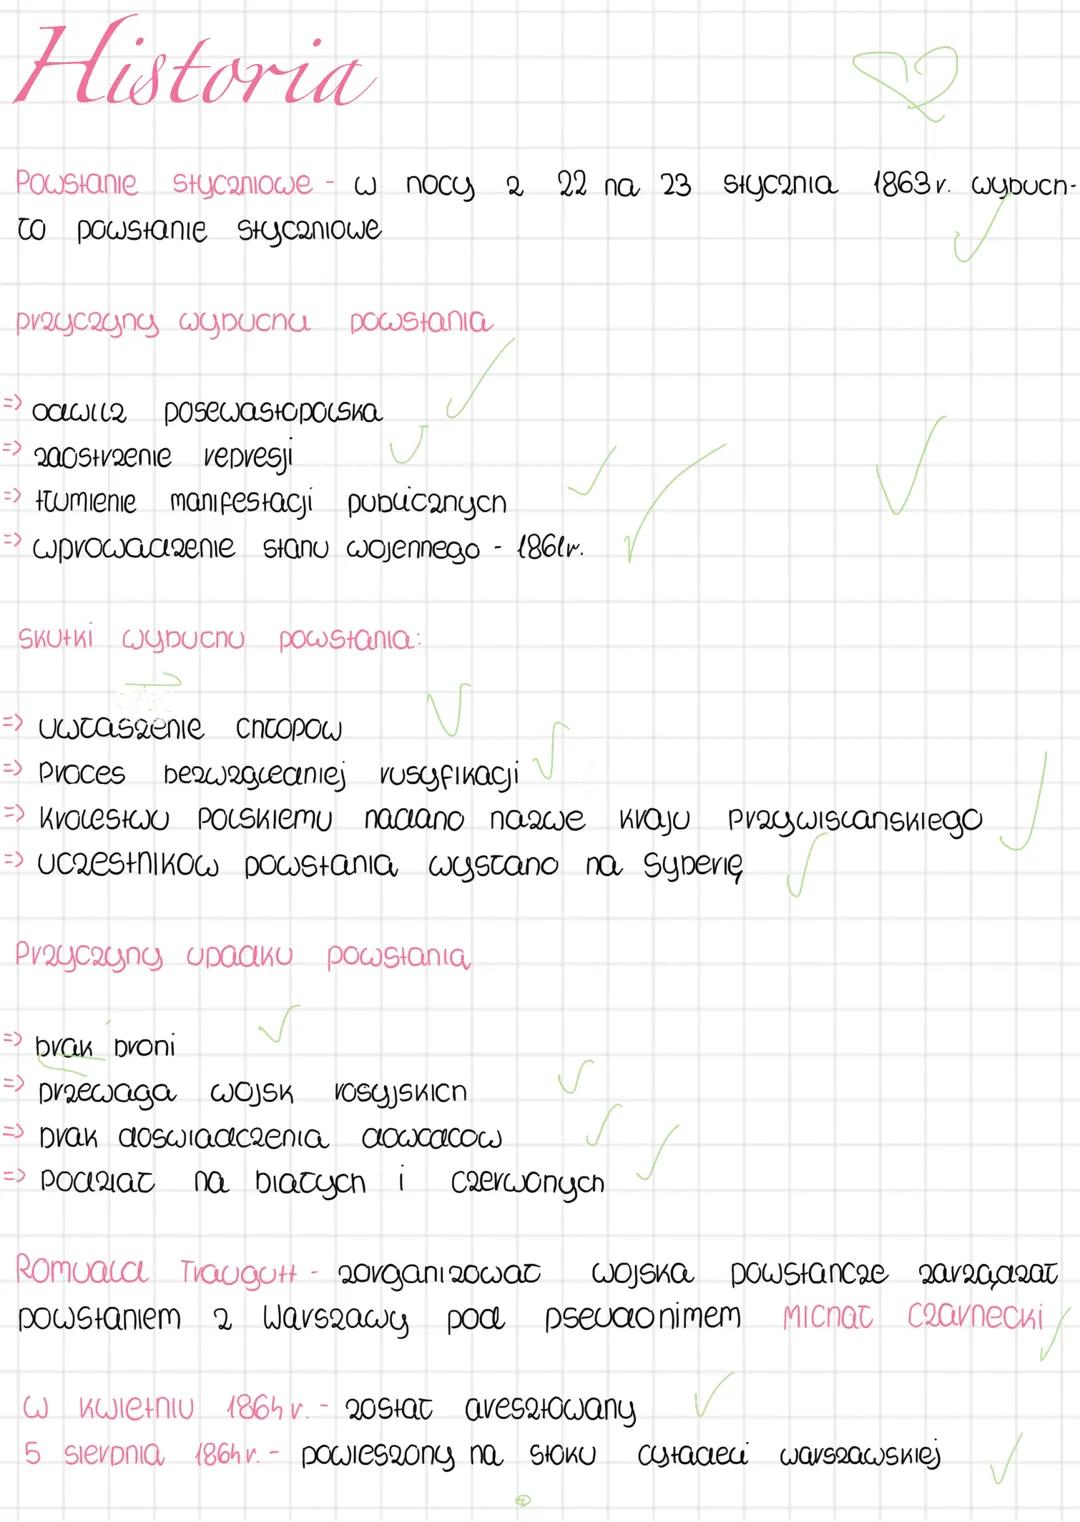 Historia
Powstanie styczniowe - w nocy z 22 na 23 stycznia 1863r. wybuch-
ło powstanie styczniowe
przyczyny wybuchu powstania
=> odwilż posewastopolska
=> zaostrzenie represji
=> tłumienie manifestacji publicznych
=> wprowadzenie stanu wojennego - 1861r.
Skutki wybuchu powstania:
=> uwłaszzenie chłopow
=> Proces bezwzgledniej rusyfikacji
=> Krolestwu Polskiemu nadano nazwe Kraju Przywislanskiego
=> uczestnikow powstania wysłano na Syberię
Przyczyny upadku powstania
=> brak broni
=> przewaga wojsk rosyjskich
=> brak doswiadczenia dowodcow
=> Podział na białych i czerwonych
Romuald Traugutt - zorganizował wojska powstancze zarządzał
powstaniem z Warszawy pod pseudonimem Michał Czarnecki
w kwietniu 1864r. - został aresztowany
5 sierpnia 1864r. - powieszony na stoku cytadeli warszawskiej